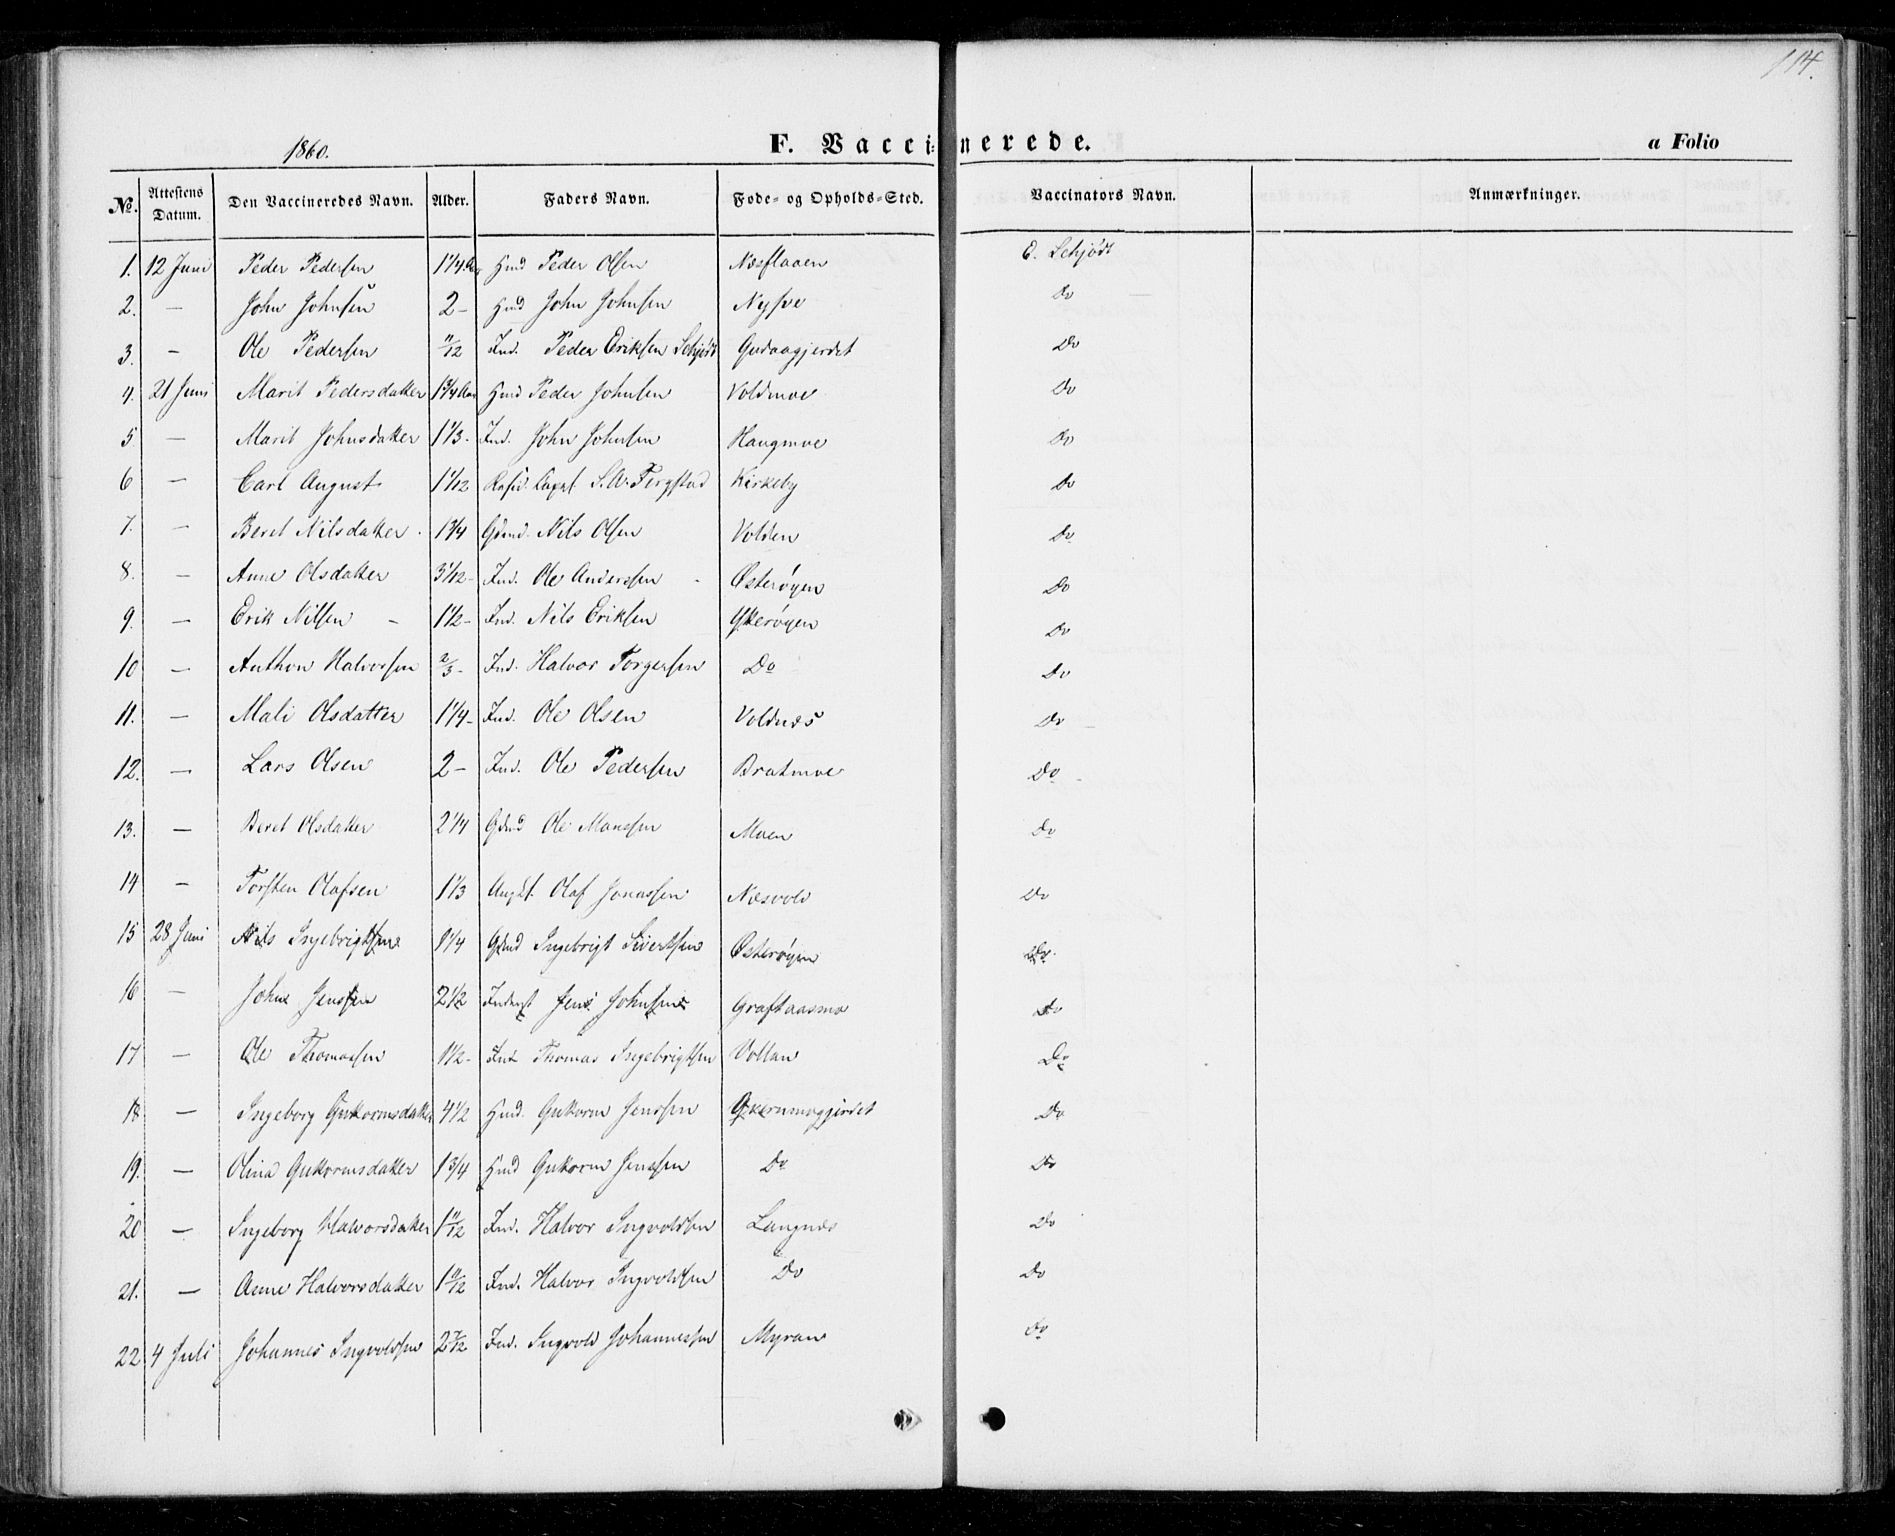 114.
1860. F. Vaccinerede. a Folio
No. Attestens Datum. Den Vaccineredes Navn. Alder. Faders Navn. Føde- og Opholds-Sted. Vaccinators Navn. Anmærkninger.
1. 12 Juni Peder Pedersen 1 1/4 Aar Hmd Peder Olsen Næsflaaen E. Schjødt
2. — John Johnsen 2 — Hmd John Johnsen Do
3. — Ole Pedersen 11/12 Ind. Peder Eriksen Schjødt Gudaagjerdet Do
4. 21 Juni Marit Pedersdatter 1 3/4 Aar Hmd Peder Johnsen Voldmoe Do
5 — Marit Johnsdatter 1 1/3 - Ind. John Johnsen Haugmoe Do
6 — Carl August 1 1/12 Capt. Kirkeby Do
7. — Beret Nilsdatter 1 3/4 Gdmd. Nils Olsen Volden Do
8. — Anne Olsdatter 3 1/12 - Ind. Ole Anderssen Østerøyen Do
9. — Erik Nilsen 1 1/2 - Ind. Nils Eriksen Ytterøyen Do
10 — Anthon Halvorsen 2/3 - Ind. Halvor Torgersen Do Do
11. — Mali Olsdatter 1 1/4 - Ind. Ole Olsen Voldnæs Do
12. — Lars Olsen 2 — Ind. Ole Pedersen Bratmoe Do
13. — Beret Olsdatter 2 1/4 Gdmd Ole Monssen Moen Do
14 — Torsten Olafsen 1 1/3 Olaf Jonassen Næsvold Do
15 28 Juni Nils Ingebrigtsen 1 1/4 Gdmd Ingebrigt Sivertsen Østerøyen Do
16 — John Jenssen 2 1/2 Inderst Jens Johnsen Graftaasmo Do
17 — Ole Thomassen 1 1/2 - Ind. Thomas Ingebrigtsen Vollan Do
18 — Ingeborg Guttormsdatter 4 1/2 Hmd. Guttorm Jenssen Do
19. — Olina Guttormsdatter 1 3/4 Hmd Guttorm Jenssen Do Do
20 — Ingeborg Halvorsdatter 1 11/12 Ind. Halvor Ingvoldsen Langnæs Do
21. — Anne Halvorsdatter 1 11/12 Ind. Halvor Ingvoldsen Do Do
22 4 Juli Johannes Ingvoldsen 2 7/12 Ind. Ingvold Johannessen Myran Do